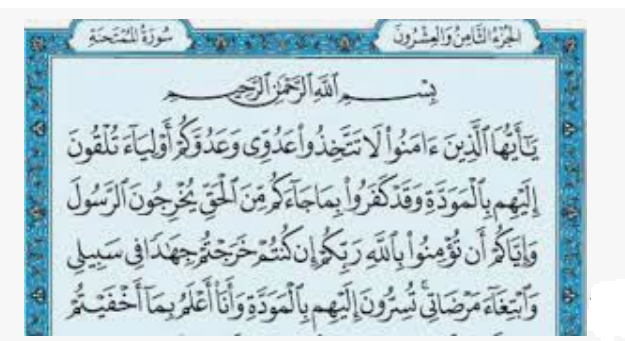 الجزء الثامن والعشرون
سورة الممتحنة
بِسْمِ ٱللَّهِ ٱلرَّحْمَٰنِ ٱلرَّحِيمِ
يَٰٓأَيُّهَا ٱلَّذِينَ ءَامَنُوا۟ لَا تَتَّخِذُوا۟ عَدُوِّى وَعَدُوَّكُمْ أَوْلِيَآءَ تُلْقُونَ
إِلَيْهِم بِٱلْمَوَدَّةِ وَقَدْ كَفَرُوا۟ بِمَا جَآءَكُم مِّنَ ٱلْحَقِّ يُخْرِجُونَ ٱلرَّسُولَ
وَإِيَّاكُمْ أَن تُؤْمِنُوا۟ بِٱللَّهِ رَبِّكُمْ إِن كُنتُمْ خَرَجْتُمْ جِهَٰدًا فِى سَبِيلِى
وَٱبْتِغَآءَ مَرْضَاتِى ۚ تُسِرُّونَ إِلَيْهِم بِٱلْمَوَدَّةِ وَأَنَا۠ أَعْلَمُ بِمَآ أَخْفَيْتُمْ